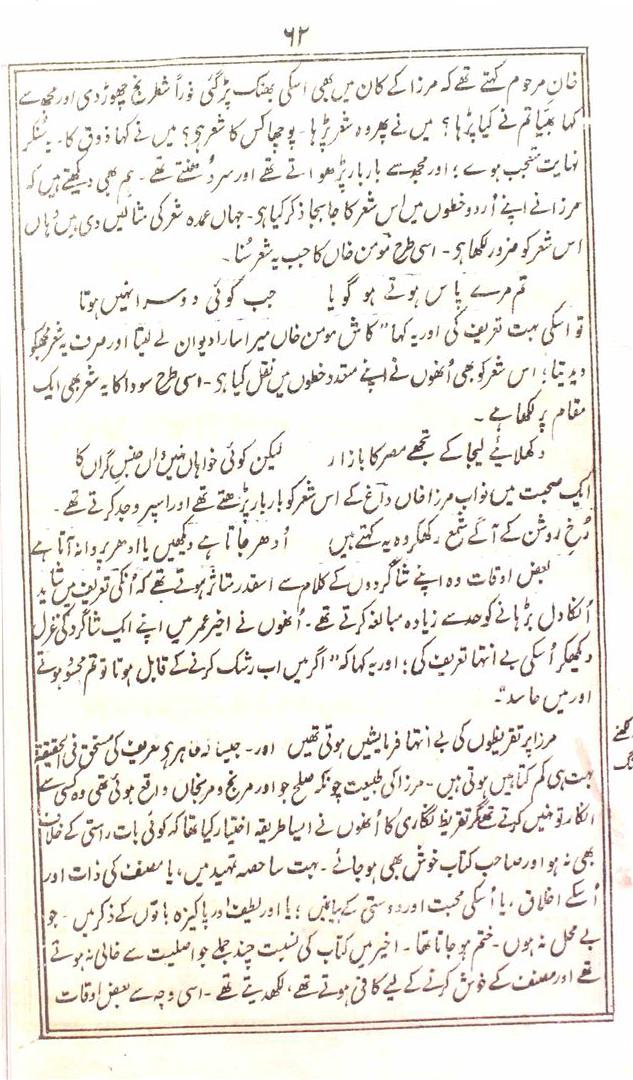 ۶۲
خان مرحوم کہتے تھے کہ مرزا کے کان میں بھی اسکی بھنک پڑ گئی فوراً شطرنج چھوڑ دی اور مجھسے
کہا بھیّا تم نے کیا پڑہا؟ میں نے پھر وہ شعر پڑہا۔ پوچھا کس کا شعر ہی؟ میں نے کہا ذوق کا۔ یہ سُنکر
نہایت متعجب ہوے؛ اور مجھسے بار بار پڑھواتے تھے اور سر دُھنتے تھے۔ ہم بھی دیکھتے ہیں کہ
مرزا نے اپنے اُردو خطوں میں اس شعر کا جا بجا ذکر کیا ہی۔ جہاں عمدہ شعر کی مثالیں دی ہیں وُہاں
اس شعر کو ضرور لکھا ہی۔ اسی طرح مومن خاں کا جب یہ شعر سُنا۔
تم مرے پاس ہوتے ہو گویا جب کوئی دوسرا نہیں ہوتا
تو اسکی بہت تعریف کی اور یہ کہا "کاش مومن خاں میرا سارا دیوان لے لیتا اور صرف یہ شعر مجھکو
دیدیتا؛ اس شعر کو بھی اُنھوں نے اپنے متعدد خطوں میں نقل کیا ہی۔ اسی طرح سودا کا یہ شعر بھی ایک
مقام پر لکھا ہے۔
دکھلائیے لیجا کے تجھے مصر کا بازار لیکن کوئی خواہاں نہیں واں جنسِ گراں کا
ایک صحبت میں نواب مرزا خاں داغ کے اس شعر کو بار بار پڑھتے تھے اور اسپر وجد کرتے تھے۔
رُخِ روشن کے آگے شمع رکھکر وہ یہ کہتے ہیں اُدھر جاتا ہے دیکھیں یا ادھر پروانہ آتا ہے
بعض اوقات وہ اپنے شاگردوں کے کلام سے اسقدر متاثر ہوتے تھے کہ اُنکی تعریف میں شاید
اُنکا دل بڑہانے کو حد سے زیادہ مبالغہ کرتے تھے۔ اُنھوں نے اخیر عمر میں اپنے ایک شاگرد کی غزل
دیکھکر اُسکی بے انتہا تعریف کی؛ اور یہ کہا کہ "اگر میں اب رشک کرنے کے قابل ہوتا تو تم محسود ہوتے
اور میں حاسد"۔
مرزا پر تقریظوں کی بے انتہا فرمایشیں ہوتی تھیں اور۔ جیسا کہ ظاہر ہی تعریف کی مستحق فی الحقیقۃ
بہت ہی کم کتابیں ہوتی ہیں۔ مرزا کی طبیعت چونکہ صلح جو اور مرنج و مرنجاں واقع ہوئی تھی وہ کسی سے
انکار تو نہیں کرتے تھے مگر تقریظ نگاری کا اُنھوں نے ایسا طریقہ اختیار کیا تھا کہ کوئی بات راستی کے خلاف
بھی نہ ہو اور صاحب کتاب خوش بھی ہو جائے۔ بہت سا حصہ تمہید میں، یا مصنف کی ذات اور
اُسکے اخلاق، یا اُسکی محبت اور دوستی کے بیان میں؛ یا اور لطیف اور پاکیزہ باتوں کے ذکر میں۔ جو
بے محل نہ ہوں۔ ختم ہو جاتا تھا۔ اخیر میں کتاب کی نسبت چند جملے جو اصلیت سے خالی نہ ہوتے
تھے اور مصنف کے خوش کرنے کے لیے کافی ہوتے تھے، لکھدیتے تھے۔ اسی وجہ سے بعض اوقات